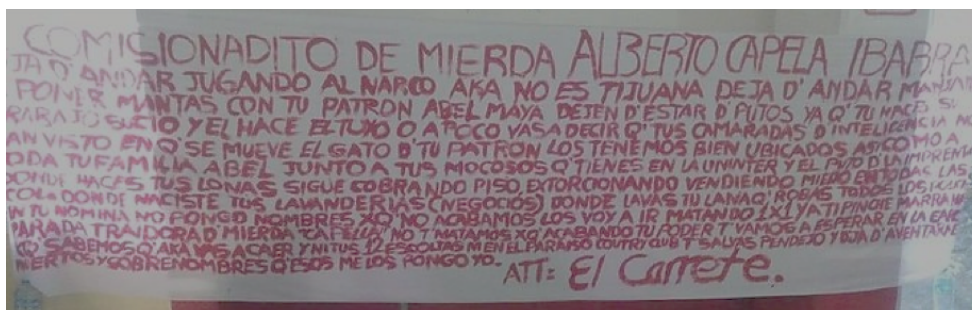 COMISIONADITO DE MIERDA ALBERTO CAPELA IBARRA
JA D' ANDAR JUGANDO AL NARCO AKA NO ES TIJUANA DEJA D' ANDAR MANDAN
PONER MANTAS CON TU PATRON ABEL MAYA DEJEN D' ESTAR D' PUTOS YA Q' TU HACES SU
RABAJO SUCIO Y EL HACE EL TUYO O APOCO VAS A DECIR Q' TUS CAMARADAS D' INTELIGENCIA NO
AN VISTO EN Q' SE MUEVE EL GATO D' TU PATRON LOS TENEMOS BIEN UBICADOS ASI COMO A
ODA TU FAMILIA ABEL JUNTO A TUS MOCOSOS Q' TIENES EN LA UNINTER Y EL PUTO D' LA IMPRENTA
DONDE HACES TUS LONAS SIGUE COBRANDO PISO, EXTORCIONANDO VENDIENDO MIEDO EN TODAS LAS
COLA DONDE NACISTE TUS LAVANDERIAS (NEGOCIOS) DONDE LAVAS TU LANA Q' ROBAS TODOS LOS
N TU NOMINA NO PONGO NOMBRES XQ' NO ACABAMOS LOS VOY A IR MATANDO 1X1 YA TI PINCHE MARRANA
PARADA TRAIDORA D' MIERDA "CAPELLA" NO T' MATAMOS XQ' ACABANDO TU PODER T' VAMOS A ESPERAR EN LA
Q' SABEMOS Q' AKA VAS A CAER Y NI TUS 12 ESCOLTAS NI EN EL PARAISO COUTRY CLUB T' SALVAS PENDEJO Y DEJA D' AVENTARME
MUERTOS Y SOBRENOMBRES Q' ESOS ME LOS PONGO YO.-
ATT: El Carrete.